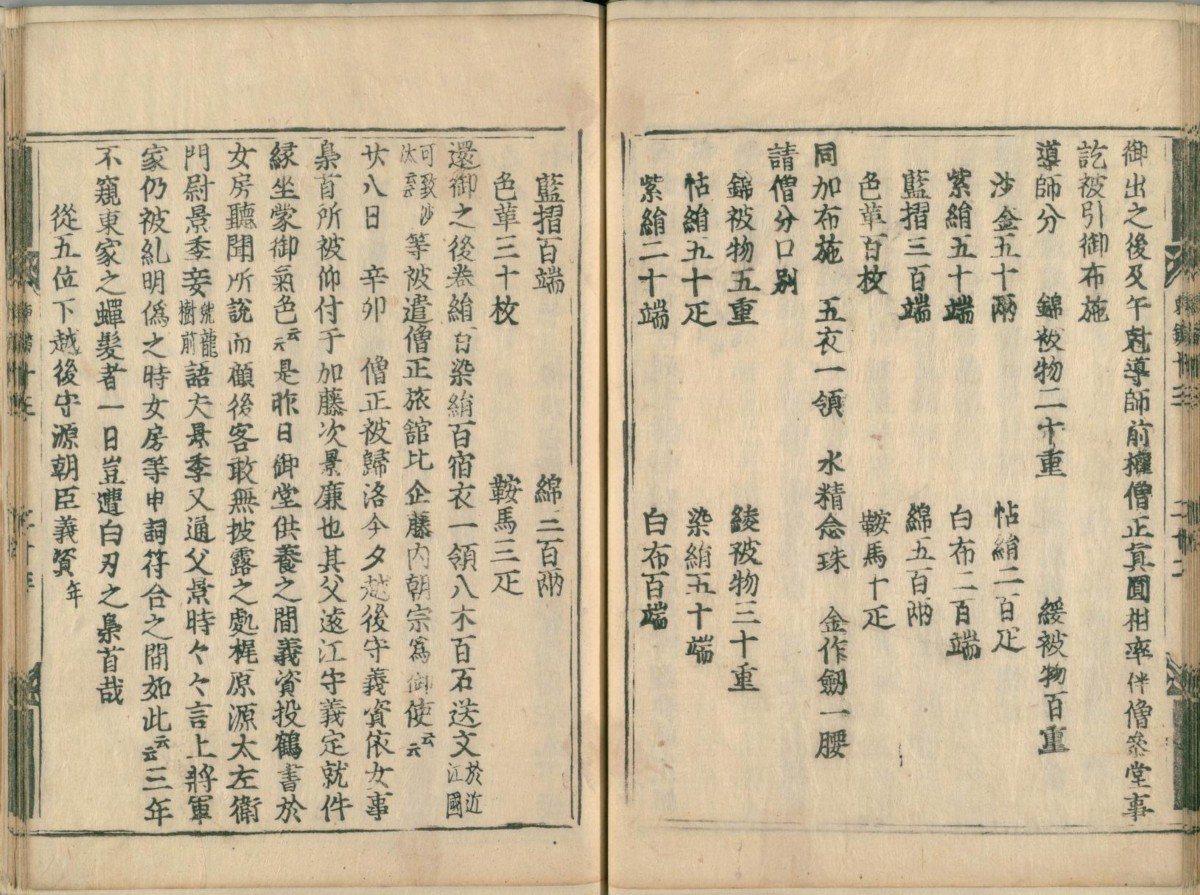 御出之後及午尅導師前權僧正真圓相率伴僧參堂事
訖被引御布施
導師分 錦被物二十重 綾被物百重
沙金五十兩 帖絹二百疋
紫絹五十端 白布二百端
藍摺三百端 綿五百兩
色革百枚 鞍馬十疋
同加布施 五衣一領 水精念珠 金作劔一腰
請僧分口別
錦被物五重 綾被物三十重
帖絹五十疋 染絹五十端
紫絹二十端 白布百端
藍摺百端 綿三百兩
色革三十枚 鞍馬三疋
還御之後卷絹百染絹百宿衣一領八木百石送文於近江國
可致沙汰云云等被遣僧正旅館比企藤内朝宗爲御使云云
廿八日 辛卯 僧正被歸洛今夕越後守義資依女事
梟首所被仰付于加藤次景廉也其父遠江守義定就件
縁坐蒙御氣色云云是昨日御堂供養之間義資投鶴書於
女房聽聞所說而顧後害敢無披露之處梶原源太左衛
門尉景季妾號龍樹前語夫景季又通父景時々々言上將軍
家仍被糺明僞之時女房等申詞符合之間如此云云三年
不窺東家之蟬髮者一日豈遭白刃之梟首哉
從五位下越後守源朝臣義資年